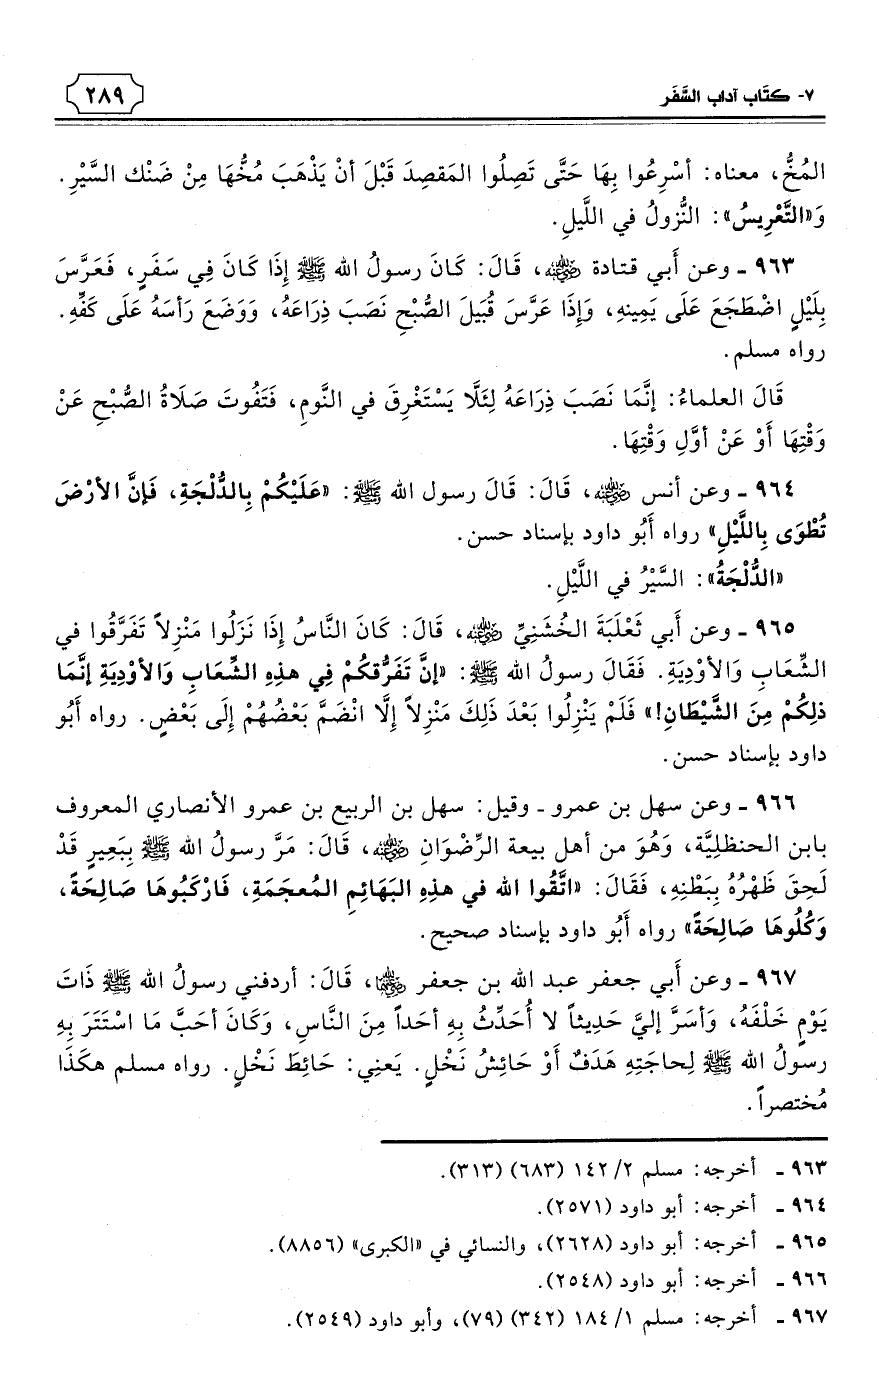 ٧- كتَاب آداب السَّفَر
٢٨٩
المُخُّ، معناه: أسْرِعُوا بِهَا حَتَّى تَصِلُوا المَقصِدَ قَبْلَ أنْ يَذْهَبَ مُخُّهَا مِنْ ضَنْك السَّيْرِ.
وَ«التَّعْرِيسُ»: النُّزولُ في اللَّيلِ.
٩٦٣ ـ وعن أَبي قتادة رضي الله عنه، قَالَ: كَانَ رسولُ الله ﷺ إِذَا كَانَ فِي سَفَرٍ، فَعَرَّسَ
بِلَيْلٍ اضْطَجَعَ عَلَى يَمِينهِ، وَإذَا عَرَّسَ قُبَيلَ الصُّبْحِ نَصَبَ ذِرَاعَهُ، وَوَضَعَ رَأسَهُ عَلَى كَفِّهِ.
رواه مسلم.
قَالَ العلماءُ: إنَّمَا نَصَبَ ذِرَاعَهُ لِئَلَّا يَسْتَغْرِقَ في النَّومِ، فَتَفُوتَ صَلَاةُ الصُّبْحِ عَنْ
وَقْتِهَا أَوْ عَنْ أوَّلِ وَقْتِهَا.
٩٦٤ ـ وعن أنس رضي الله عنه، قَالَ: قَالَ رسول الله ﷺ: «عَلَيْكُمْ بِالدُّلْجَةِ، فَإنَّ الأرْضَ
تُطْوَى بِاللَّيْلِ» رواه أَبُو داود بإسناد حسن.
«الدُّلْجَةُ»: السَّيْرُ في اللَّيْلِ.
٩٦٥ ـ وعن أَبي ثَعْلَبَةَ الخُشَنِيِّ رضي الله عنه، قَالَ: كَانَ النَّاسُ إِذَا نَزَلُوا مَنْزِلاً تَفَرَّقُوا في
الشِّعَابِ وَالأوْدِيَةِ. فَقَالَ رسولُ الله ﷺ: «إنَّ تَفَرُّقكُمْ فِي هذِهِ الشِّعَابِ وَالأوْدِيَةِ إنَّمَا
ذلِكُمْ مِنَ الشَّيْطَانِ!» فَلَمْ يَنْزِلُوا بَعْدَ ذَلِكَ مَنْزِلاً إِلَّا انْضَمَّ بَعْضُهُمْ إِلَى بَعْضٍ. رواه أَبُو
داود بإسناد حسن.
٩٦٦ ـ وعن سهل بن عمرو ـ وقيل: سهل بن الربيع بن عمرو الأنصاري المعروف
بابن الحنظلِيَّة، وَهُوَ من أهل بيعة الرِّضْوَانِ رضي الله عنه، قَالَ: مَرَّ رسولُ الله ﷺ بِبَعِيرٍ قَدْ
لَحِقَ ظَهْرُهُ بِبَطْنِهِ، فَقَالَ: «اتَّقُوا الله في هذِهِ البَهَائِمِ المُعجَمَةِ، فَارْكَبُوهَا صَالِحَةً،
وَكُلُوهَا صَالِحَةً» رواه أَبُو داود بإسناد صحيح.
٩٦٧ ـ وعن أَبي جعفر عبد الله بن جعفر رضي الله عنهما، قَالَ: أردفني رسولُ الله ﷺ ذَاتَ
يَوْمٍ خَلْفَهُ، وَأسَرَّ إليَّ حَدِيثاً لا أُحَدِّثُ بِهِ أحَداً مِنَ النَّاسِ، وَكَانَ أحَبَّ مَا اسْتَتَرَ بِهِ
رسولُ الله ﷺ لِحاجَتِهِ هَدَفٌ أَوْ حَائِشُ نَخْلٍ. يَعنِي: حَائِطَ نَخْلٍ. رواه مسلم هكَذَا
مُختصراً.
٩٦٣ ـ أخرجه: مسلم ٢/ ١٤٢ (٦٨٣) (٣١٣).
٩٦٤ ـ أخرجه: أبو داود (٢٥٧١).
٩٦٥ ـ أخرجه: أبو داود (٢٦٢٨)، والنسائي في «الكبرى» (٨٨٥٦).
٩٦٦ ـ أخرجه: أبو داود (٢٥٤٨).
٩٦٧ ـ أخرجه: مسلم ١/ ١٨٤ (٣٤٢) (٧٩)، وأبو داود (٢٥٤٩).